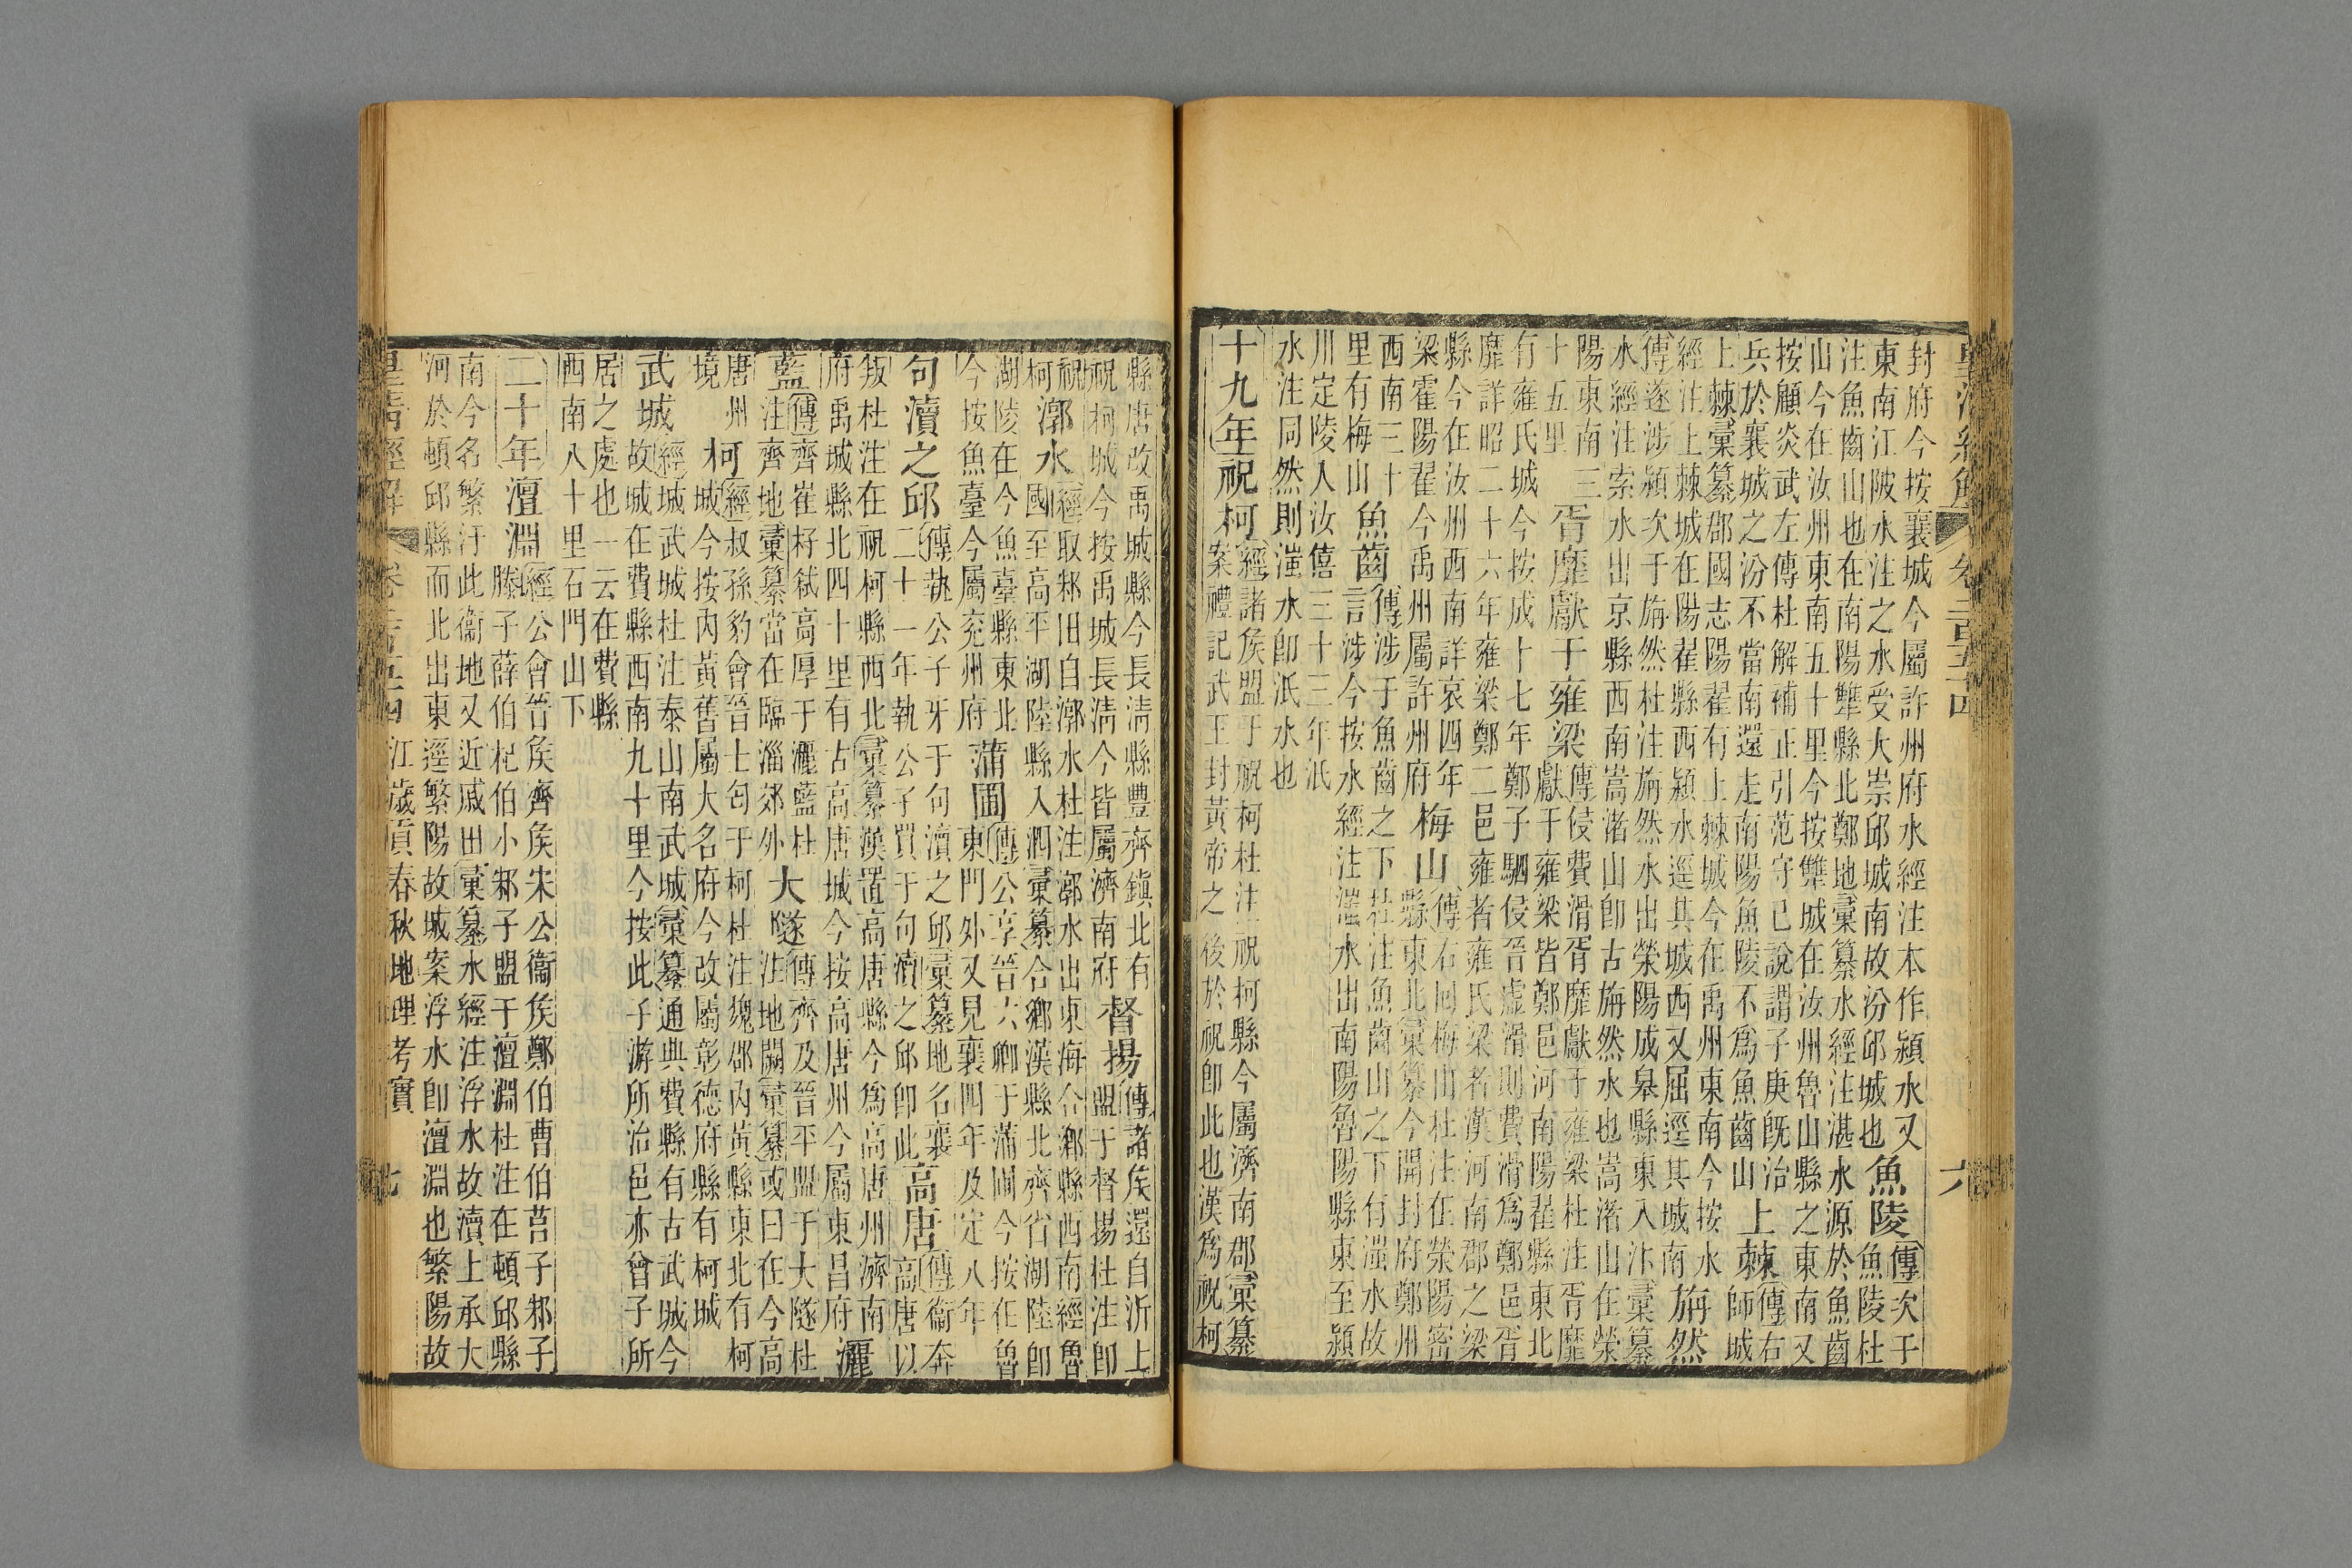 皇清經解 卷二百五十四 六
封府今按襄城今屬許州府水經注本作潁水又
東南江陂水注之水受大崇邱城南故汾邱城也
魚陵
傳次于
魚陵杜
注魚齒山也在南陽犨縣北鄭地彙纂水經注湛水源於魚齒
山今在汝州東南五十里今按犨城在汝州魯山縣之東南又
按顧炎武左傳杜解補正引范守已說謂子庚旣治
兵於襄城之汾不當南還走南陽魚陵不爲魚齒山
上棘
傳右
師城
上棘彙纂郡國志陽翟有上棘城今在禹州東南今按水
經注上棘城在陽翟縣西潁水逕其城西又屈逕其城南
旃然
傳遂涉潁次于旃然杜注旃然水出滎陽成皋縣東入汴彙纂
水經注索水出京縣西南嵩渚山卽古旃然水也嵩渚山在滎
陽東南三
十五里
胥靡獻于雍梁
傳侵費滑胥靡獻于雍梁杜注胥靡
獻于雍梁皆鄭邑河南陽翟縣東北
有雍氏城今按成十七年鄭子駟侵晉虛滑則費滑爲鄭邑胥
靡詳昭二十六年雍梁鄭二邑雍者雍氏梁者漢河南郡之梁
縣今在汝州西南詳哀四年
梁霍陽翟今禹州屬許州府
梅山
傳右回梅山杜注在滎陽密
縣東北彙纂今開封府鄭州
西南三十
里有梅山
魚齒
傳涉于魚齒之下杜注魚齒山之下有滍水故
言涉今按水經注滍水出南陽魯陽縣東至潁
川定陵入汝僖三十三年泜
水注同然則滍水卽泜水也
十九年祝柯
經諸侯盟于祝柯杜注祝柯縣今屬濟南郡彙纂
案禮記武王封黃帝之後於祝卽此也漢爲祝柯
縣唐改禹城縣今長淸縣豐齊鎭北有
祝柯城今按禹城長淸今皆屬濟南府
督揚
傳諸侯還自沂上
盟于督揚杜注卽
祝
柯
漷水
經取邾田自漷水杜注漷水出東海合鄉縣西南經魯
國至高平湖陸縣入泗彙纂合鄉漢縣北齊省湖陸卽
湖陵在今魚臺縣東北
今按魚臺今屬兗州府
蒲圃
傳公享晉六卿于蒲圃今按在魯
東門外又見襄四年及定八年
句瀆之邱
傳執公子牙于句瀆之邱彙纂地名襄
二十一年執公子買于句瀆之邱卽此
高唐
傳衞奔
高唐以
叛杜注在祝柯縣西北彙纂漢置高唐縣今爲高唐州濟南
府禹城縣北四十里有古高唐城今按高唐州今屬東昌府
灑
藍
傳齊崔杼弒高厚于灑藍杜
注齊地彙纂當在臨淄郊外
大隧
傳齊及晉平盟于大隧杜
注地闕彙纂或曰在今高
唐州
境
柯
經叔孫豹會晉士匄于柯杜注魏郡內黃縣東北有柯
城今按內黃舊屬大名府今改屬彰德府縣有柯城
武城
經城武城杜注泰山南武城彙纂通典費縣有古武城今
故城在費縣西南九十里今按此子游所治邑亦曾子所
居之處也一云在費縣
西南八十里石門山下
二十年澶淵
經公會晉侯齊侯宋公衞侯鄭伯曹伯莒子邾子
滕子薛伯杞伯小邾子盟于澶淵杜注在頓邱縣
南今名繁汙此衞地又近戚田彙纂水經注浮水故瀆上承大
河於頓邱縣而北出東逕繁陽故城案浮水卽澶淵也繁陽故
皇清經解 卷二百五十四 江歲貢春秋地理考實 七